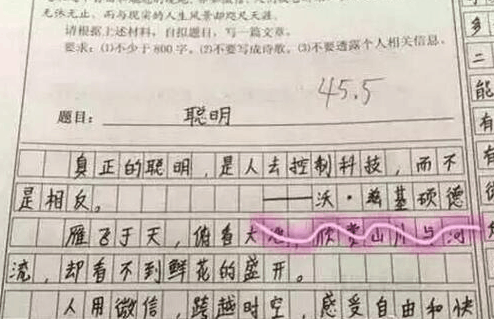 无休无止，而与现实的人生风景却咫尺天涯。
请根据上述材料，自拟题目，写一篇文章。
要求：(1)不少于800字。(2)不要写成诗歌。(3)不要透露个人相关信息。
45.5
题目：聪明
真正的聪明，是人去控制科技，而不
是相反。
——沃·兹基硕德
雁飞于天，俯看大地，欣赏山川与河
流，却看不到鲜花的盛开。
人用微信，跨越时空，感受自由和快
多
二
能
有
有